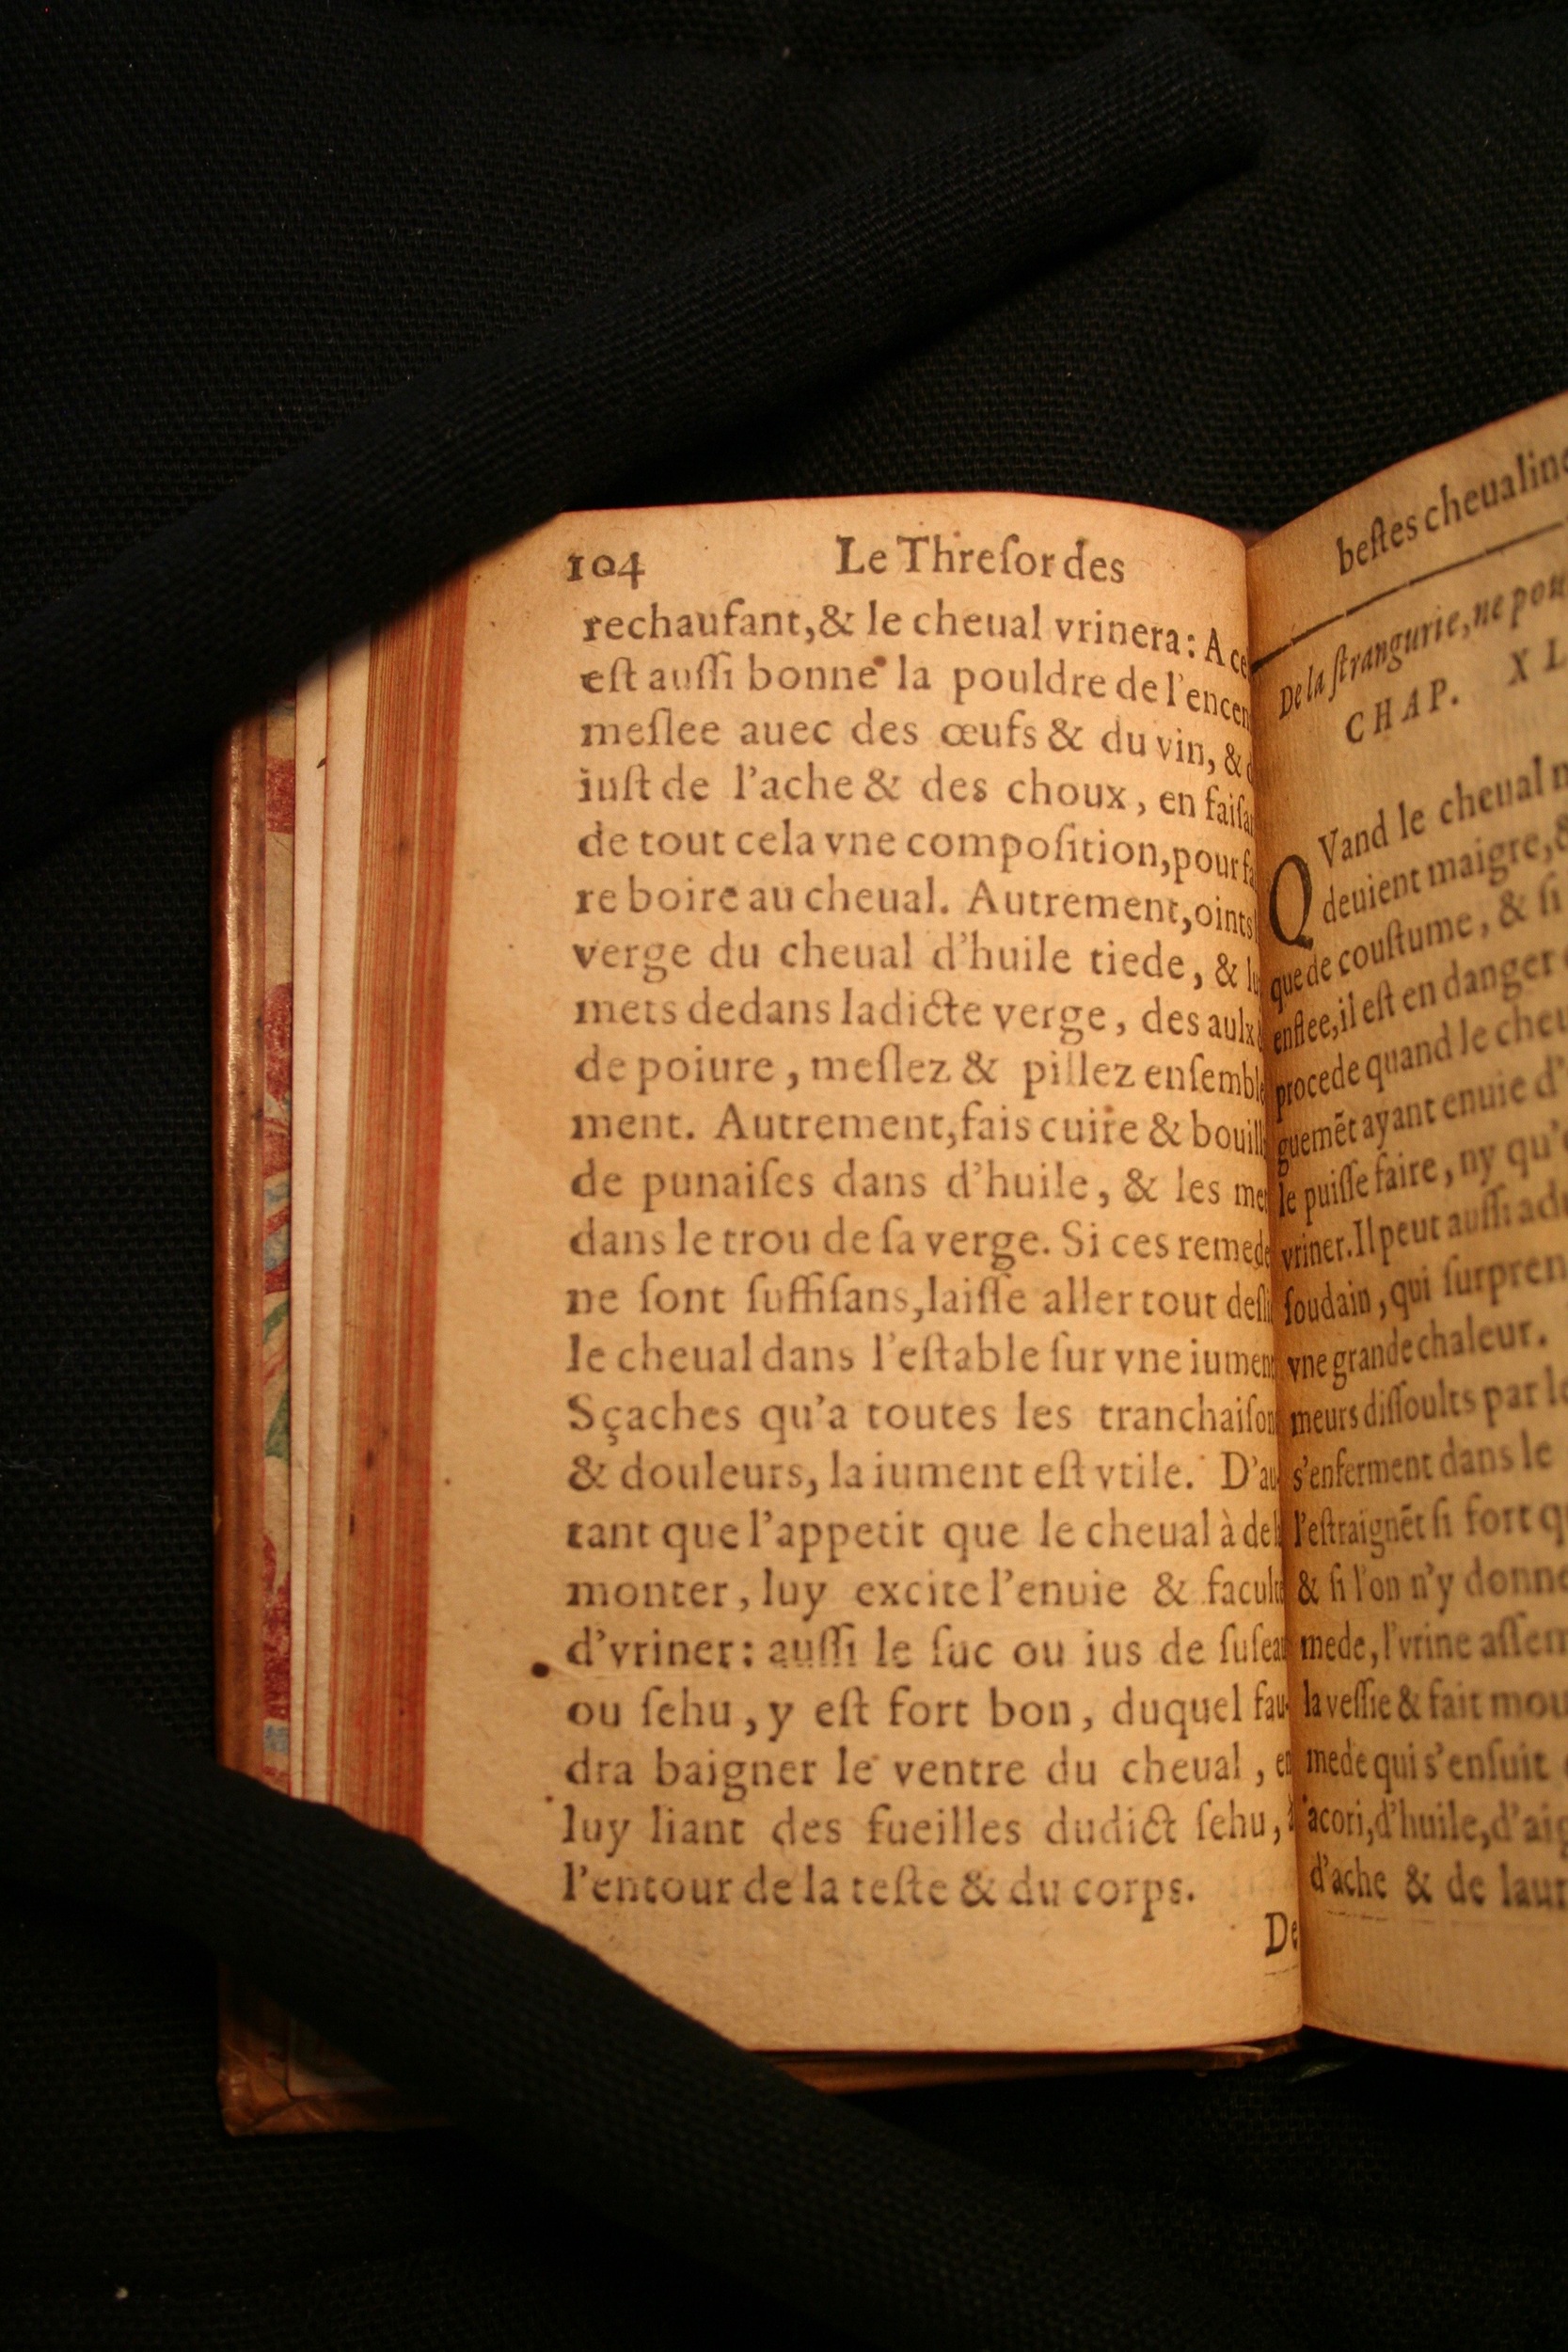 104 Le Threſor des
rechaufant,& le cheual vrinera: A ce
eſt auſſi bonne la pouldre de l'encen
meſlee auec des œufs & du vin, &
iuſt de l'ache & des choux, en faiſa
de tout cela vne compoſition,pour fa
re boire au cheual. Autrement,oints
verge du cheual d'huile tiede, & lu
mets dedans ladicte verge, des aulx
de poiure, meſlez & pillez enſemble
ment. Autrement,fais cuire & bouill
de punaiſes dans d'huile, & les met
dans le trou de ſa verge. Si ces remede
ne ſont ſuffiſans,laiſſe aller tout deſli
le cheual dans l'eſtable ſur vne iument
Sçaches qu'a toutes les tranchaiſons
& douleurs, la iument eſt vtile. D'au-
tant que l'appetit que le cheual à de la
monter, luy excite l'enuie & faculté
d'vriner: auſſi le ſuc ou ius de ſuſeau
ou ſehu, y eſt fort bon, duquel fau-
dra baigner le ventre du cheual, en
luy liant des fueilles dudict ſehu, à
l'entour de la teſte & du corps.
De
beſtes cheualine
De la ſtrangurie, ne pou
CHAP. XL
QVand le cheual n
deuient maigre, &
que de couſtume, & ſi
enflee,il eſt en danger
procede quand le cheu
guemẽt ayant enuie d'
le puiſſe faire, ny qu'
vriner. Il peut auſſi ad
ſoudain, qui ſurpren
vne grande chaleur.
meurs diſſoults par le
s'enferment dans le
l'eſtraignẽt ſi fort q
& ſi l'on n'y donne
mede, l'vrine aſſem
la veſſie & fait mou
mede qui s'enſuit
acori,d'huile,d'aig
d'ache & de laur